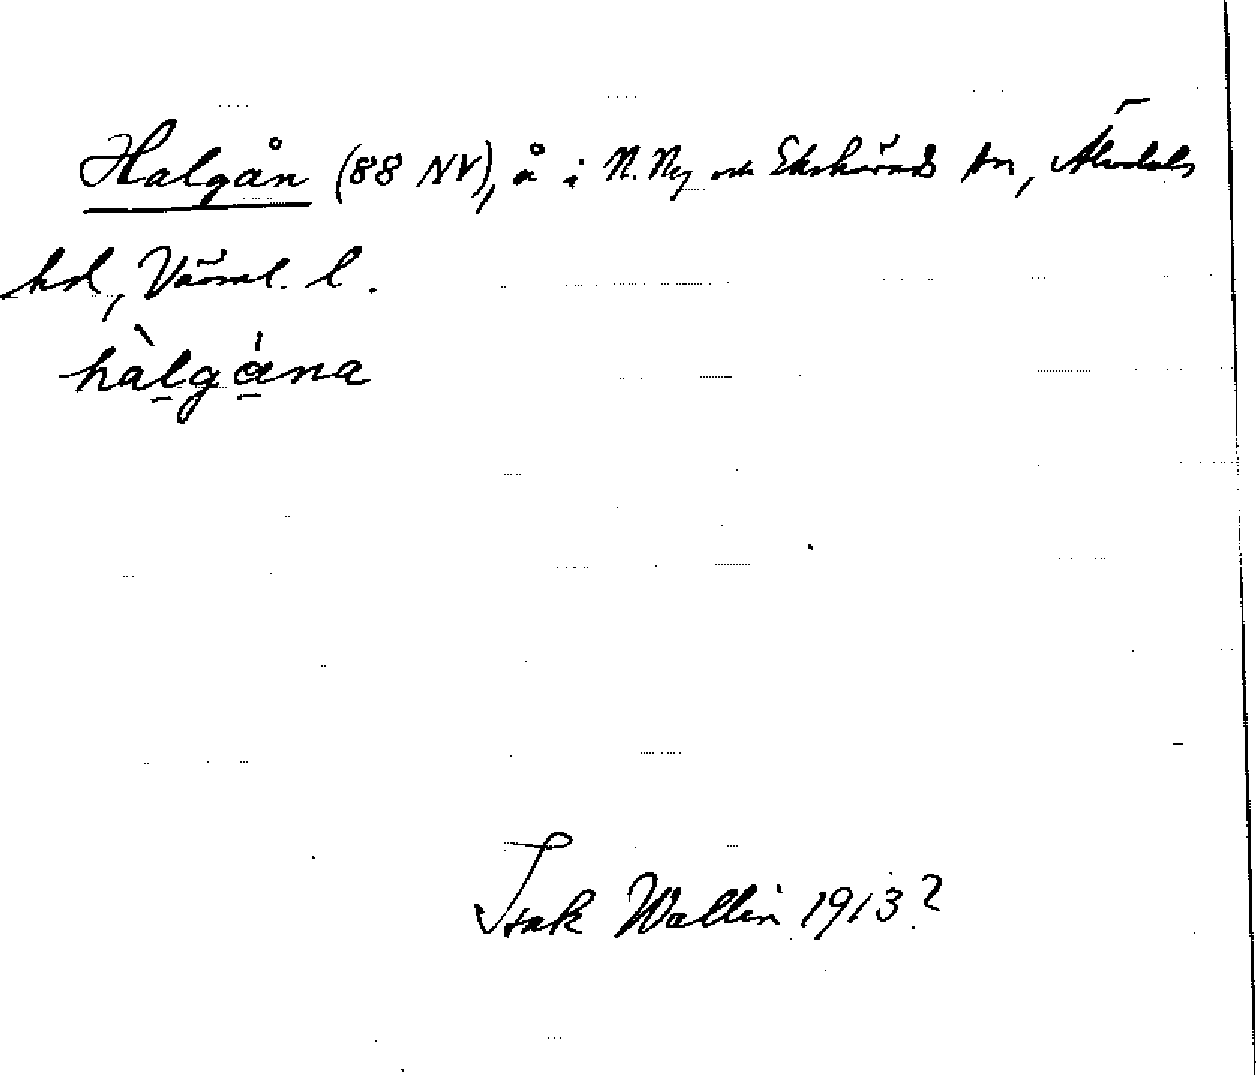 Halgån (88 NV), å i N. Ny och Ekshärads snr, Älvdals
hd, Värml. l.
hàlgåna
Isak Wallin 1913?